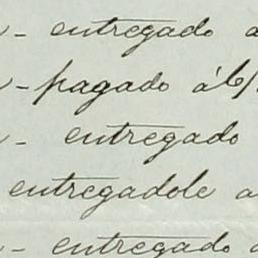 - entregado a
- pagado á 6/
- entregado
entregadole a
- entregado a